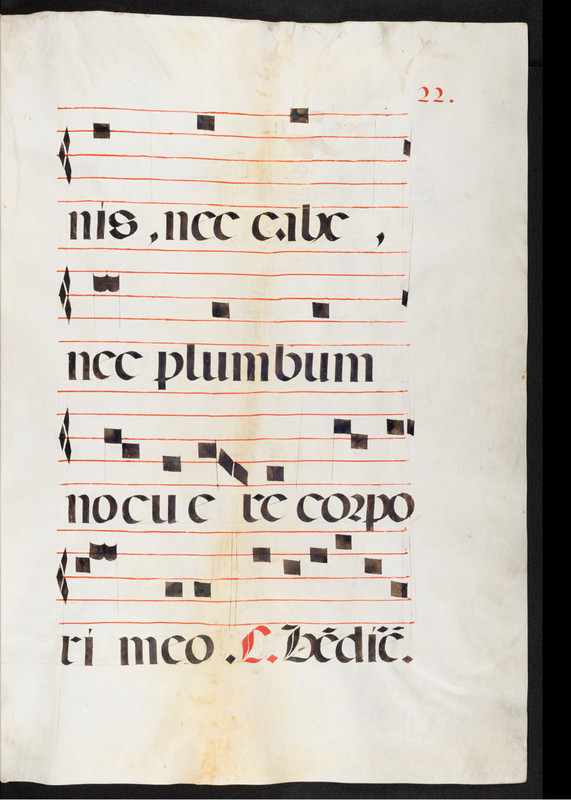 22.
nis, nec cabe,
nec plumbum
nocuere corpo
ri meo. C. Bēdic̄.